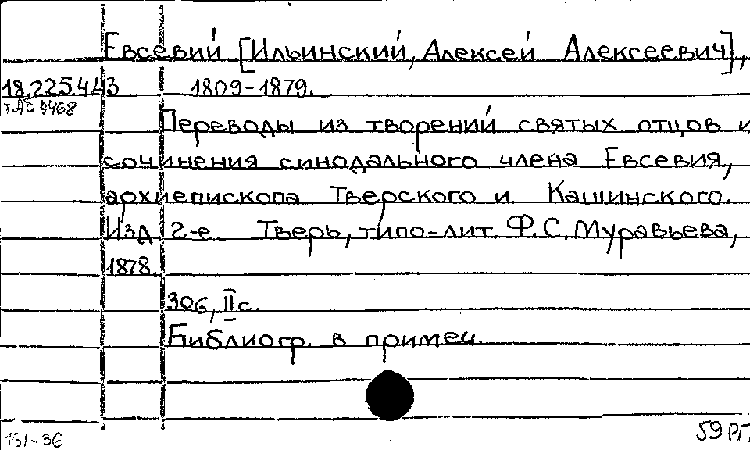 Евсевий [Ильинский, Алексей Алексеевич],
18.225.443 1809-1879.
Переводы из творений святых отцов и
сочинения синодального члена Евсевия,
архиепископа Тверского и Кашинского.
Изд 2-е Тверь, типо-лит. Ф.С. Муравьева,
1878.
306, II с.
Библиогр. в примеч.
131-36 59 РП